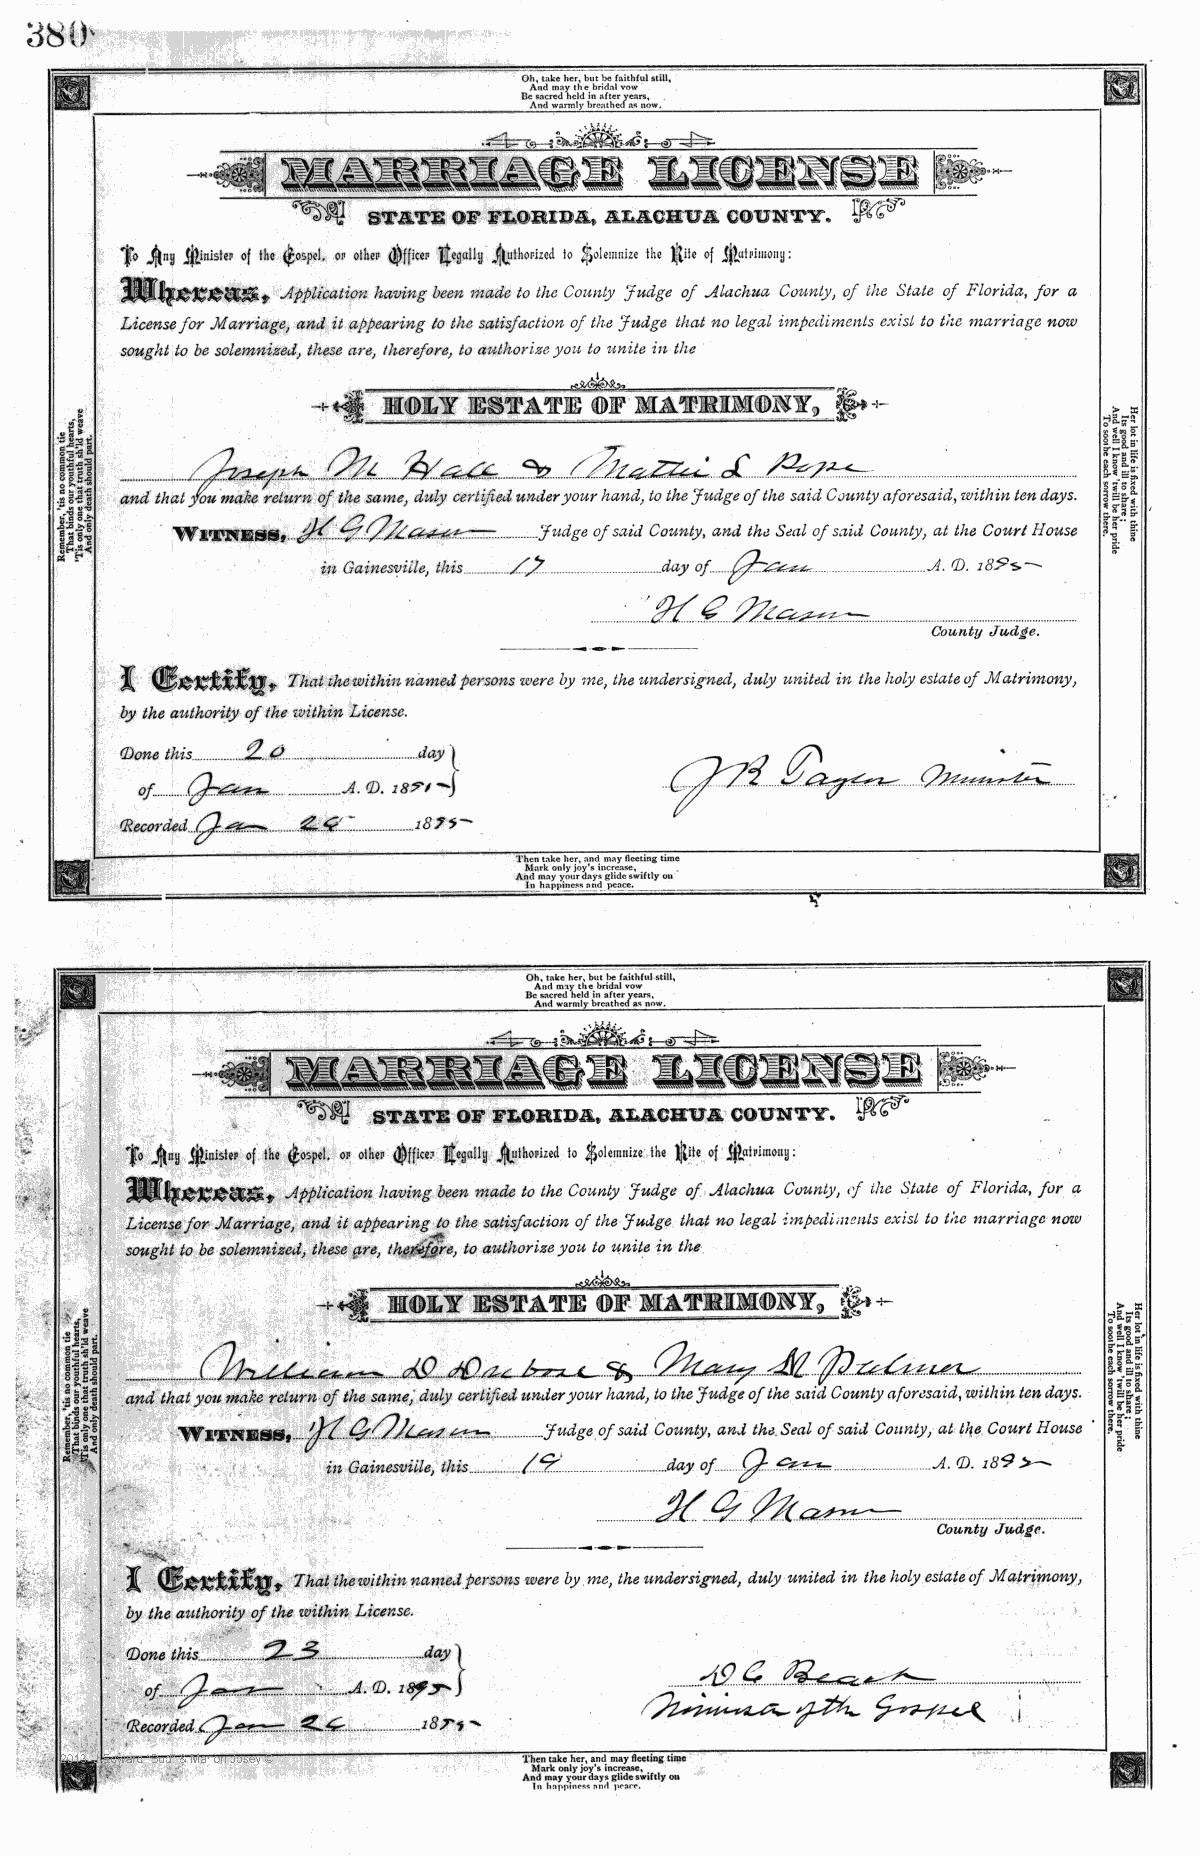 380
Oh, take her, but be faithful still,
And may the bridal vow
Be sacred held in after years,
And warmly breathed as now.
MARRIAGE LICENSE
STATE OF FLORIDA, ALACHUA COUNTY.
To Any Minister of the Gospel, or other Officer Legally Authorized to Solemnize the Rite of Matrimony:
Whereas, Application having been made to the County Judge of Alachua County, of the State of Florida, for a
License for Marriage, and it appearing to the satisfaction of the Judge that no legal impediments exist to the marriage now
sought to be solemnized, these are, therefore, to authorize you to unite in the
HOLY ESTATE OF MATRIMONY,
Joseph M Hall & Mattie L Pope
and that you make return of the same, duly certified under your hand, to the Judge of the said County aforesaid, within ten days.
WITNESS, H G Mason Judge of said County, and the Seal of said County, at the Court House
in Gainesville, this 17 day of Jan A. D. 1895
H G Mason
County Judge.
I Certify, That the within named persons were by me, the undersigned, duly united in the holy estate of Matrimony,
by the authority of the within License.
Done this 20 day
of Jan A. D. 1895
J R Taylor Minister
Recorded Jan 1895
Remember, 'tis no common tie
That binds our youthful hearts,
'Tis only one that truth sh'ld weave
And only death should part.
Her lot in life is fixed with thine
Its good and ill to share;
And well I know 'twill be her pride
To soothe each sorrow there.
Then take her, and may fleeting time
Mark only joy's increase,
And may your days glide swiftly on
In happiness and peace.
Oh, take her, but be faithful still,
And may the bridal vow
Be sacred held in after years,
And warmly breathed as now.
MARRIAGE LICENSE
STATE OF FLORIDA, ALACHUA COUNTY.
To Any Minister of the Gospel, or other Officer Legally Authorized to Solemnize the Rite of Matrimony:
Whereas, Application having been made to the County Judge of Alachua County, of the State of Florida, for a
License for Marriage, and it appearing to the satisfaction of the Judge that no legal impediments exist to the marriage now
sought to be solemnized, these are, therefore, to authorize you to unite in the
HOLY ESTATE OF MATRIMONY,
William D Dubose & Mary M Palmer
and that you make return of the same, duly certified under your hand, to the Judge of the said County aforesaid, within ten days.
WITNESS, H G Mason Judge of said County, and the Seal of said County, at the Court House
in Gainesville, this 19 day of Jan A. D. 1895
H G Mason
County Judge.
I Certify, That the within named persons were by me, the undersigned, duly united in the holy estate of Matrimony,
by the authority of the within License.
Done this 23 day
of Jan A. D. 1895
D C
Minister of the Gospel
Recorded Jan 26 1895
Remember, 'tis no common tie
That binds our youthful hearts,
'Tis only one that truth sh'ld weave
And only death should part.
Her lot in life is fixed with thine
Its good and ill to share;
And well I know 'twill be her pride
To soothe each sorrow there.
Then take her, and may fleeting time
Mark only joy's increase,
And may your days glide swiftly on
In happiness and peace.